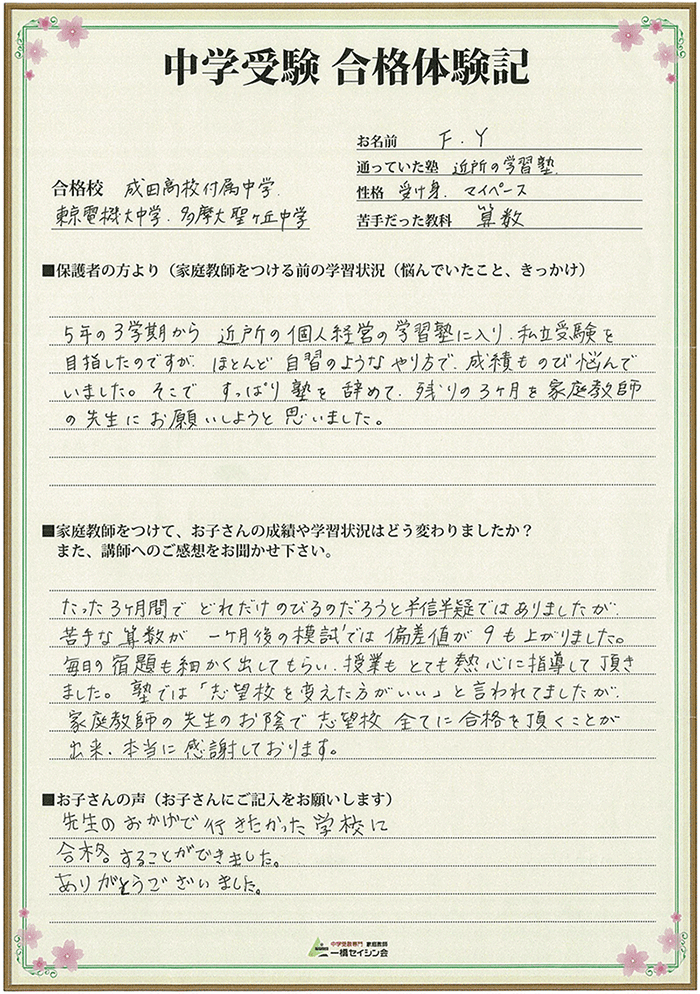 中学受験 合格体験記
お名前 F.Y
通っていた塾 近所の学習塾
合格校 成田高校付属中学.
性格 受け身. マイペース
東京電機大中学. 多摩大聖ヶ丘中学
苦手だった教科 算数
■保護者の方より（家庭教師をつける前の学習状況（悩んでいたこと、きっかけ）
5年の3学期から 近所の個人経営の学習塾に入り、私立受験を
目指したのですが、ほとんど自習のようなやり方で、成績ものび悩んで
いました。そこで すっぱり塾を辞めて、残りの3ヶ月を家庭教師
の先生にお願いしようと思いました。
■家庭教師をつけて、お子さんの成績や学習状況はどう変わりましたか？
また、講師へのご感想をお聞かせ下さい。
たった3ヶ月間で どれだけのびるのだろうと半信半疑ではありましたが、
苦手な算数が 一ヶ月後の模試では偏差値が9も上がりました。
毎日の宿題も細かく出してもらい、授業もとても熱心に指導して頂き
ました。塾では「志望校を変えた方がいい」と言われてましたが、
家庭教師の先生のお陰で志望校全てに合格を頂くことが
出来、本当に感謝しております。
■お子さんの声（お子さんにご記入をお願いします）
先生のおかげで行きたかった学校に
合格することができました。
ありがとうございました。
中学受験専門 家庭教師
一橋セイシン会